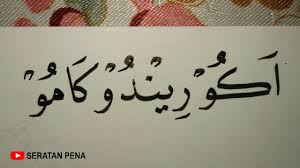 اَكُوْ رِيْنْدُوْ كَامُوْ
SERATAN PENA